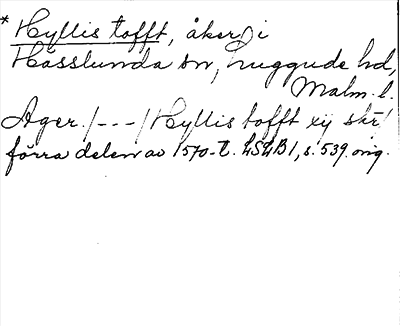 * Hyllis tofft, åker i
Hässlunda sn, Luggude hd,
Malm. l.
Ager /---/ Hyllis tofft xij skr!
förra delen av 1570-t. LSLB1, s. 539. orig.